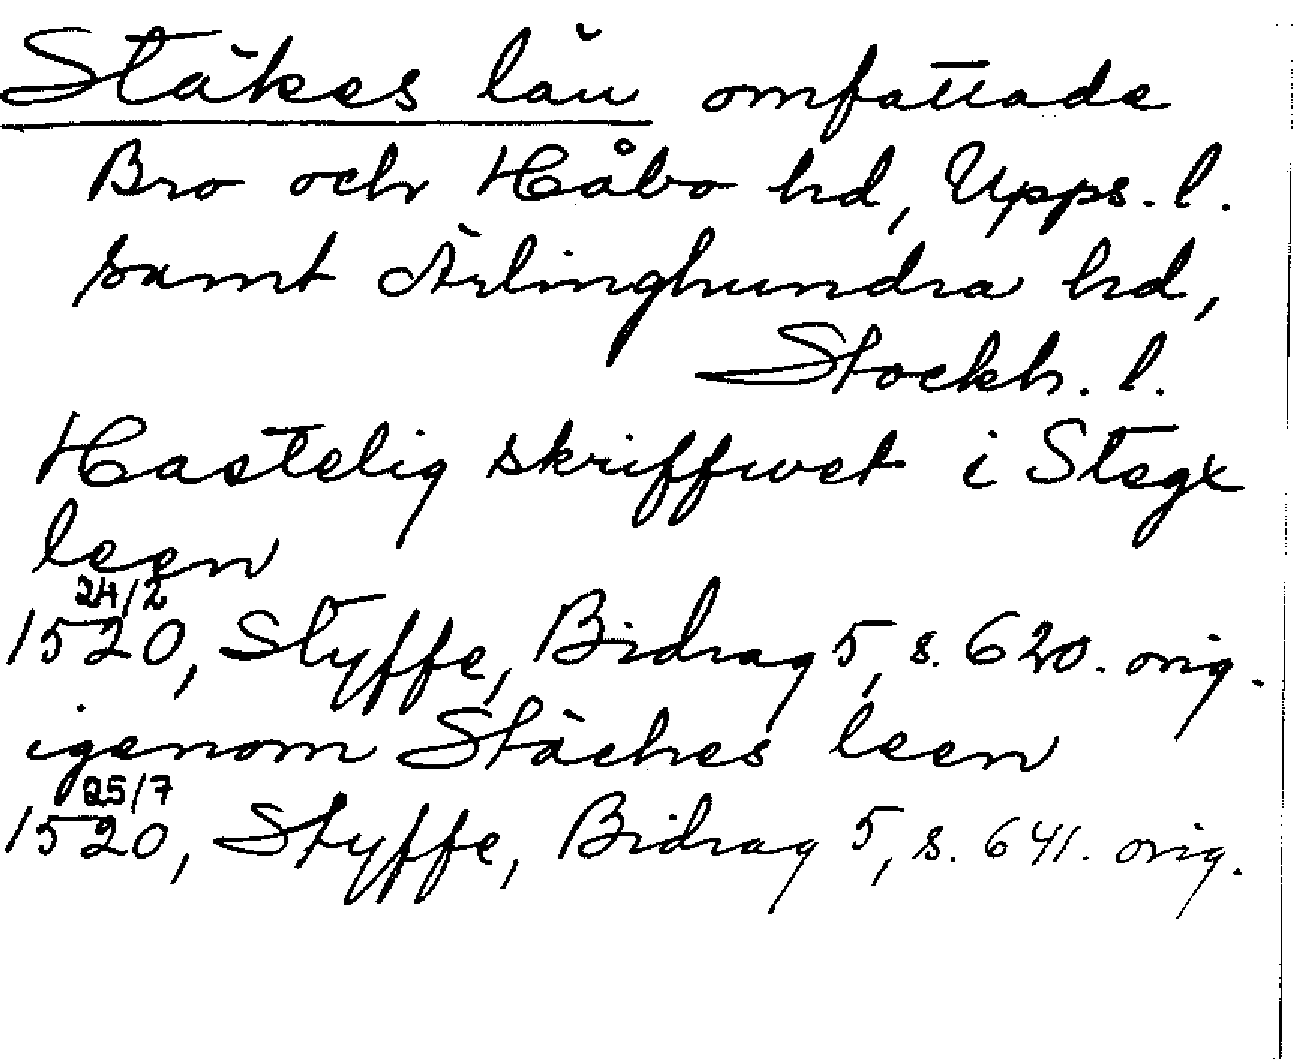 Stäkes län omfattade
Bro och Håbo hd, Upps. l.
samt Ärlinghundra hd,
Stockh. l.
Hastelig skriffwet i Stegx
leen
24/2
1520, Styffe, Bidrag 5, s. 620. orig.
igenom Stäches leen
25/7
1520, Styffe, Bidrag 5, s. 641. orig.